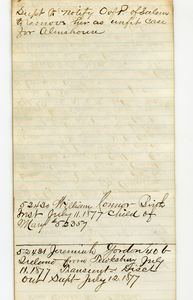 Supt to Notify O of P. of Salem
to remove her as unfit case
for Almshouse
52430 William Connor Birth
Inst July 11.1877 Child of
Mary 52357
52431 Jeremiah Gordon 40 b
Ireland from Tewksbury July
11.1877 Transient Disch
out Supt July 12.1877